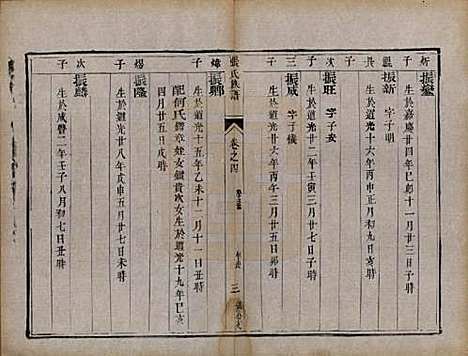 振鑾
生於嘉慶廿四年己卯十一月廿三日子時
振新 字子明
生於道光十六年丙申正月初九日亥時
次子 振旺 字子炎
生於道光廿二年壬寅三月廿八日
三子 振威 字子儀
生於道光廿六年丙午三月廿五日卯時
張氏族譜
卷之四
三
子 振鄉
生於道光十五年乙未十二月十一日
配何氏
次女生於道光十九年己亥
四月廿五日戌時
子 振隆
生於道光廿八年戊申五月廿七日未時
次子 振麟
生於咸豐二年壬子八月初七日丑時